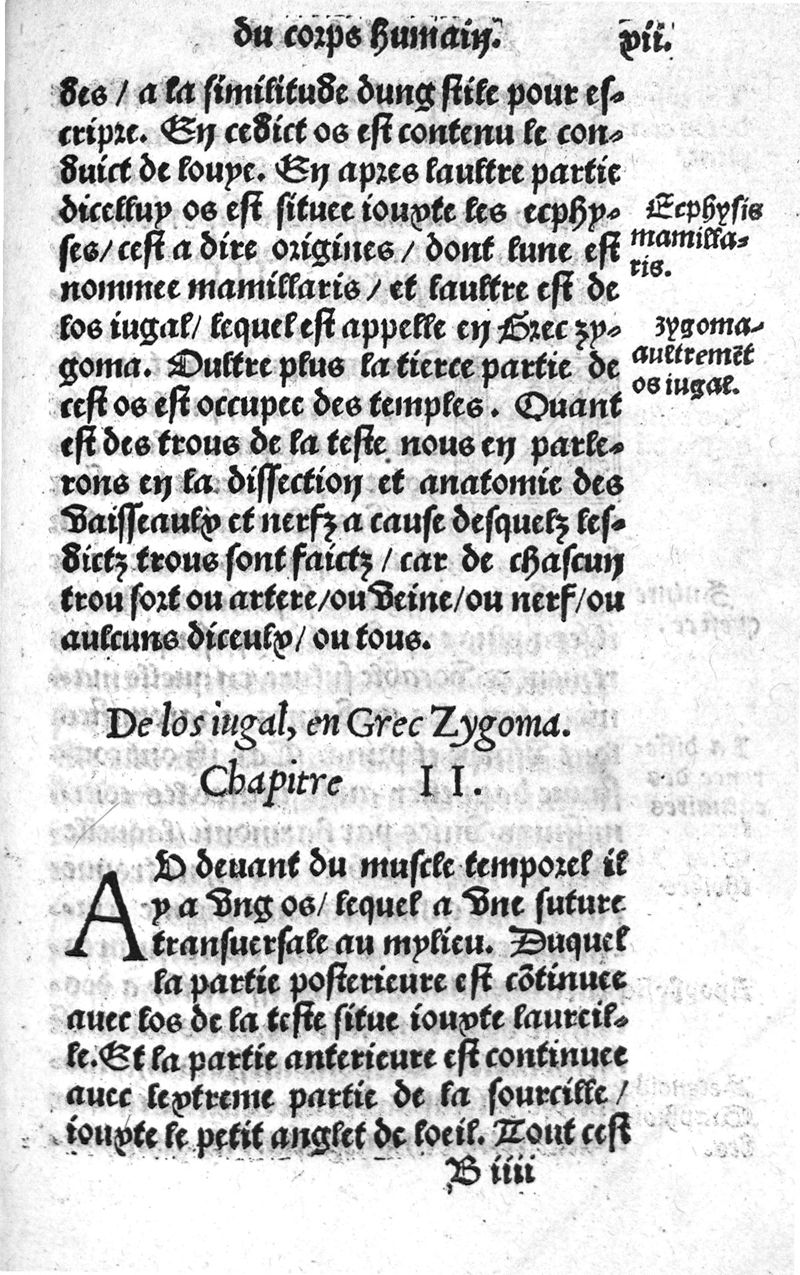 du corps humain. vii.
des / a la similitude dung stile pour es-
cripre. En cedict os est contenu le con-
duict de louye. En apres laultre partie
dicelluy os est situee iouxte les ecphy-
ses/ cest a dire origines / dont lune est
nommee mamillaris / et laultre est de
los iugal/ lequel est appelle en Grec zy-
goma. Oultre plus la tierce partie de
cest os est occupee des temples. Quant
est des trous de la teste nous en parle-
rons en la dissection et anatomie des
vaisseaulx et nerfz a cause desquelz les-
dictz trous sont faictz / car de chascun
trou sort ou artere/ou veine/ou nerf/ou
aulcuns diceulx/ ou tous.
Ecphysis
mamilla-
ris.
zygoma-
aultremẽt
os iugal.
De los iugal, en Grec Zygoma.
Chapitre II.
AV devant du muscle temporel il
y a vng os/ lequel a vne suture
transuersale au mylieu. Duquel
la partie posterieure est cõtinuee
auec los de la teste situe iouxte laureil-
le. Et la partie anterieure est continuee
auec lextreme partie de la sourcille /
iouxte le petit anglet de loeil. Tout cest
B iiii